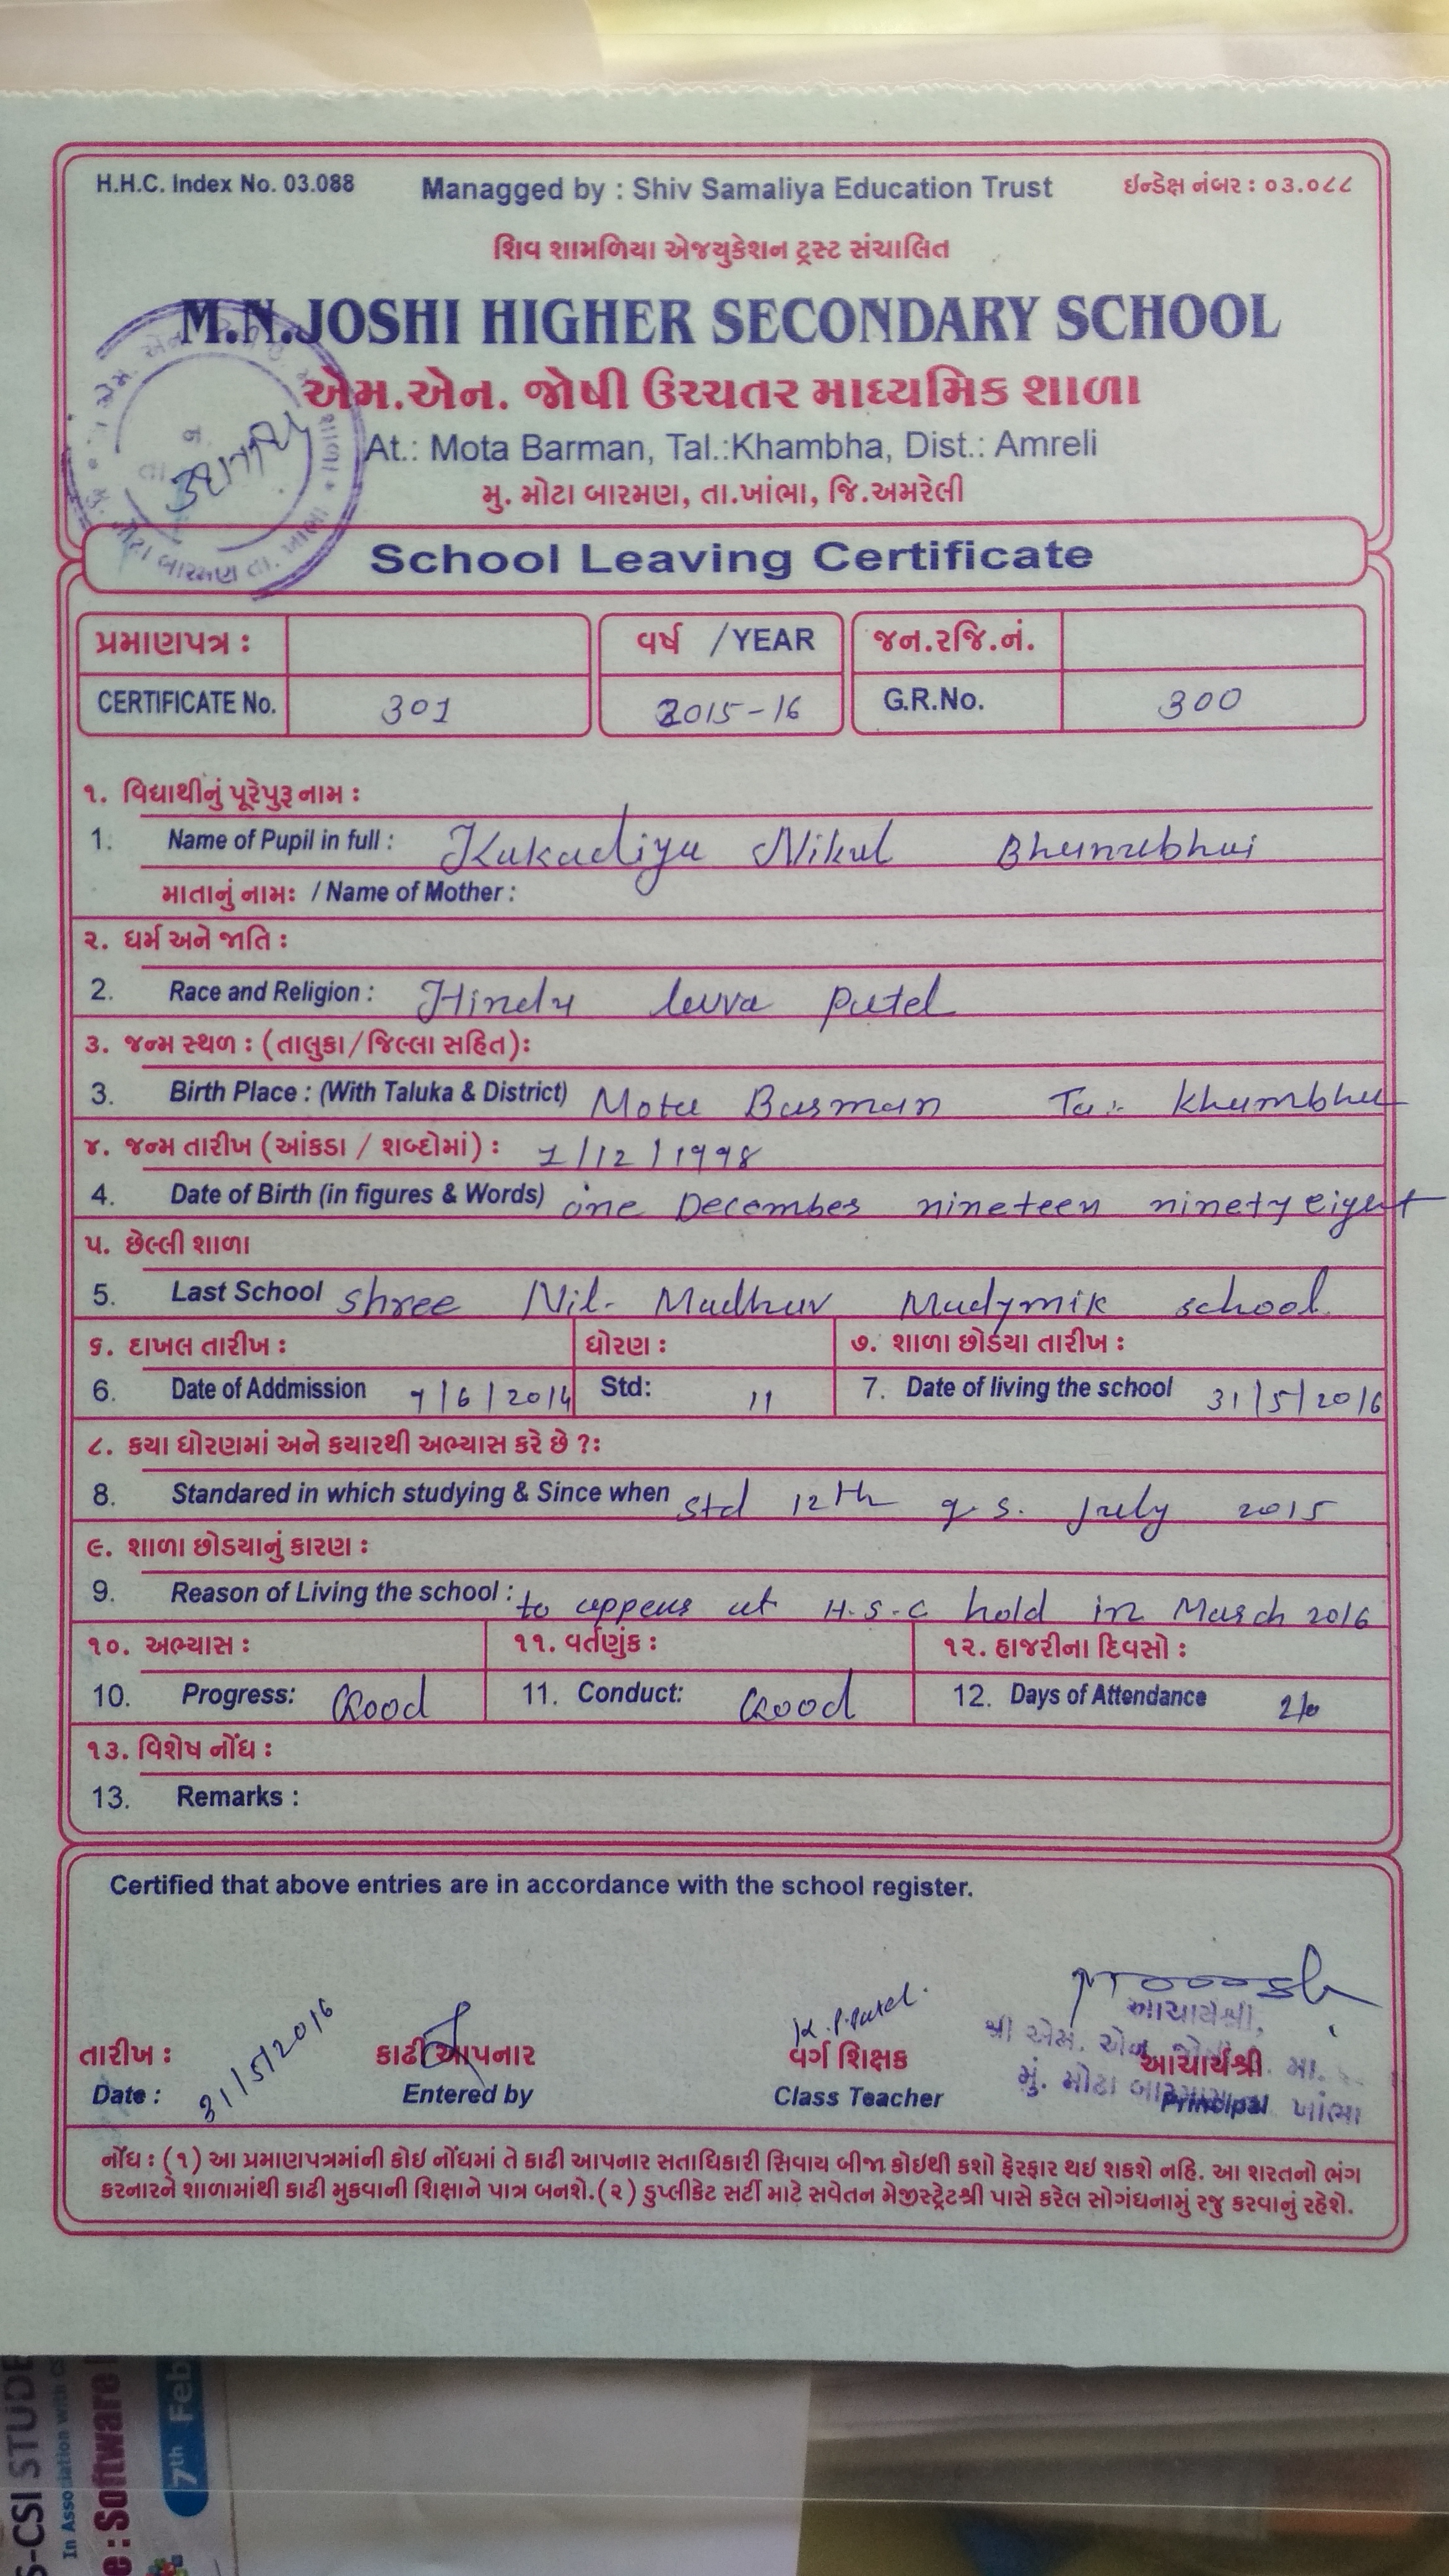 H.H.C. Index No. 03.088 Managged by : Shiv Samaliya Education Trust ઇન્ડેક્ષ નંબર : ૦૩.૦૮૮
શિવ શામળિયા એજયુકેશન ટ્રસ્ટ સંચાલિત
M.N.JOSHI HIGHER SECONDARY SCHOOL
એમ.એન. જોષી ઉચ્ચતર માધ્યમિક શાળા
At.: Mota Barman, Tal.:Khambha, Dist.: Amreli
મુ. મોટા બારમણ, તા.ખાંભા, જિ.અમરેલી
School Leaving Certificate
પ્રમાણપત્ર : વર્ષ /YEAR જન.રજિ.નં.
CERTIFICATE No. 301 2015-16 G.R.No. 300
૧. વિદ્યાર્થીનું પૂરેપુરૂ નામ :
1. Name of Pupil in full : Kakadiya Nikul Bhanubhai
માતાનું નામઃ / Name of Mother :
૨. ધર્મ અને જાતિ :
2. Race and Religion : Hindu leuva patel
૩. જન્મ સ્થળ : (તાલુકા/જિલ્લા સહિત):
3. Birth Place : (With Taluka & District) Mota Barman Ta:- Khambha
૪. જન્મ તારીખ (આંકડા / શબ્દોમાં) : 1/12/1998
4. Date of Birth (in figures & Words) one December nineteen ninety eight
૫. છેલ્લી શાળા
5. Last School Shree Nil- Madhav Madymik school.
૬. દાખલ તારીખ : ધોરણ : ૭. શાળા છોડયા તારીખ :
6. Date of Addmission 9/6/2014 Std: 11 7. Date of living the school 31/5/2016
૮. કયા ધોરણમાં અને કયારથી અભ્યાસ કરે છે ?:
8. Standared in which studying & Since when Std 12th g.s. july 2015
૯. શાળા છોડયાનું કારણ :
9. Reason of Living the school : to appear at H.S.C hold in March 2016
૧૦. અભ્યાસ : ૧૧. વર્તણુંક : ૧૨. હાજરીના દિવસો :
10. Progress: Good 11. Conduct: Good 12. Days of Attendance
૧૩. વિશેષ નોંધ :
13. Remarks :
Certified that above entries are in accordance with the school register.
K.P.Patel.
આચાર્યશ્રી,
શ્રી એમ. એન.
તારીખ : કાઢી આપનાર વર્ગ શિક્ષક આચાર્યશ્રી
મું. મોટા ખાંભા
Date : 31/5/2016 Entered by Class Teacher Principal
નોંધ : (૧) આ પ્રમાણપત્રમાંની કોઇ નોંધમાં તે કાઢી આપનાર સતાધિકારી સિવાય બીજા કોઇથી કશો ફેરફાર થઇ શકશે નહિ. આ શરતનો ભંગ
કરનારને શાળામાંથી કાઢી મુકવાની શિક્ષાને પાત્ર બનશે.(૨) ડુપ્લીકેટ સર્ટી માટે સવેતન મેજીસ્ટ્રેટશ્રી પાસે કરેલ સોગંધનામું રજુ કરવાનું રહેશે.
In Association with
: Software
7th Feb